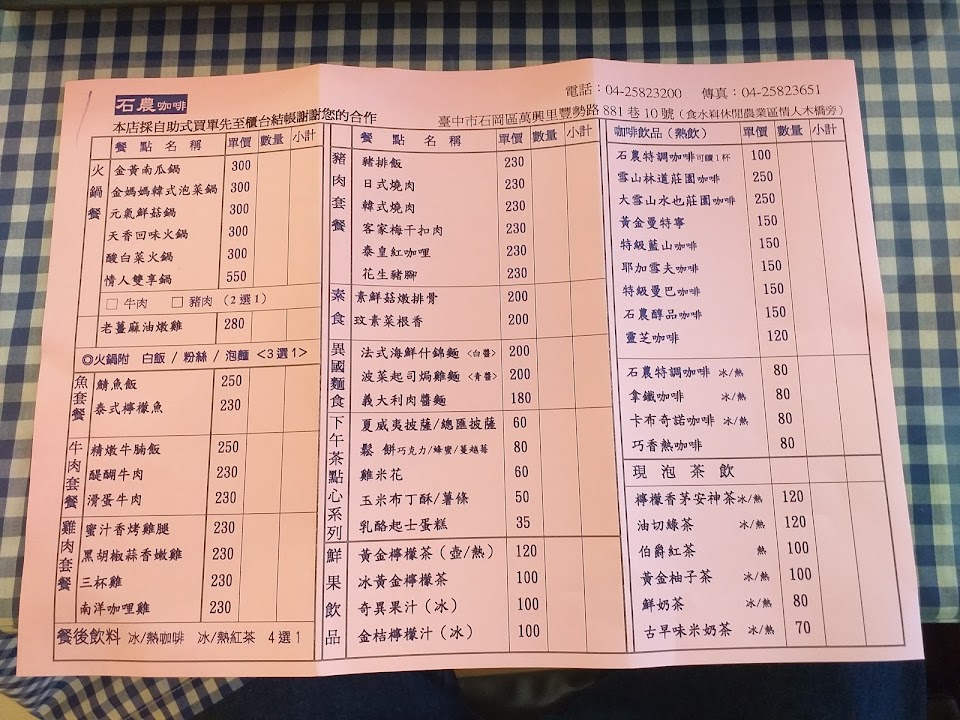 石農咖啡
電話：04-25823200 傳真：04-25823651
本店採自助式買單先至櫃台結帳謝謝您的合作
臺中市石岡區萬興里豐勢路881巷10號（食水嵙休閒農業區情人木橋旁）
餐點名稱 單價 數量 小計
火鍋餐
金黃南瓜鍋 300
金媽媽韓式泡菜鍋 300
元氣鮮菇鍋 300
天香回味火鍋 300
酸白菜火鍋 300
情人雙享鍋 550
□ 牛肉 □ 豬肉（2選1）
老薑麻油燉雞 280
◎火鍋附 白飯 / 粉絲 / 泡麵 <3選1>
魚套餐
鯖魚飯 250
泰式檸檬魚 230
牛肉套餐
精燉牛腩飯 250
醍醐牛肉 230
滑蛋牛肉 230
雞肉套餐
蜜汁香烤雞腿 230
黑胡椒蒜香嫩雞 230
三杯雞 230
南洋咖哩雞 230
餐後飲料 冰/熱咖啡 冰/熱紅茶 4選1
餐點名稱 單價 數量 小計
豬肉套餐
豬排飯 230
日式燒肉 230
韓式燒肉 230
客家梅干扣肉 230
泰皇紅咖哩 230
花生豬腳 230
素食
素鮮菇燉排骨 200
玫素菜根香 200
異國麵食
法式海鮮什錦麵 <白醬> 200
菠菜起司焗雞麵 <青醬> 200
義大利肉醬麵 180
下午茶點心系列
夏威夷披薩/總匯披薩 60
鬆餅 巧克力/蜂蜜/蔓越莓 80
雞米花 60
玉米布丁酥/薯條 50
乳酪起士蛋糕 35
鮮果飲品
黃金檸檬茶（壺/熱） 120
冰黃金檸檬茶 100
奇異果汁（冰） 100
金桔檸檬汁（冰） 100
咖啡飲品（熱飲） 單價 數量 小計
石農特調咖啡可續1杯 100
雪山林道莊園咖啡 250
大雪山水也莊園咖啡 250
黃金曼特寧 150
特級藍山咖啡 150
耶加雪夫咖啡 150
特級曼巴咖啡 150
石農醇品咖啡 150
靈芝咖啡 120
石農特調咖啡 冰/熱 80
拿鐵咖啡 冰/熱 80
卡布奇諾咖啡 冰/熱 80
巧香熱咖啡 80
現泡茶飲
檸檬香茅安神茶冰/熱 120
油切綠茶 冰/熱 120
伯爵紅茶 熱 100
黃金柚子茶 冰/熱 100
鮮奶茶 冰/熱 80
古早味米奶茶 冰/熱 70